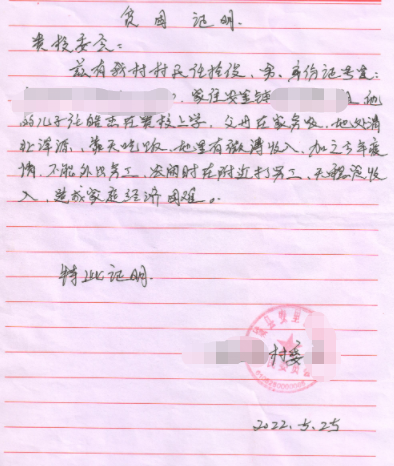 贫困证明.
贵校委会:
兹有我村村民任拴俊、男、身份证号是:
家住安里镇
儿子任 在贵校上学,父母在家务农,地处
,靠天吃饭,地里有微薄收入,加之今年疫
情,不能外出务工,农闲时在附近打零工,天 没收
入,造成家庭经济困难。
特此证明.
村委
2022.5.25